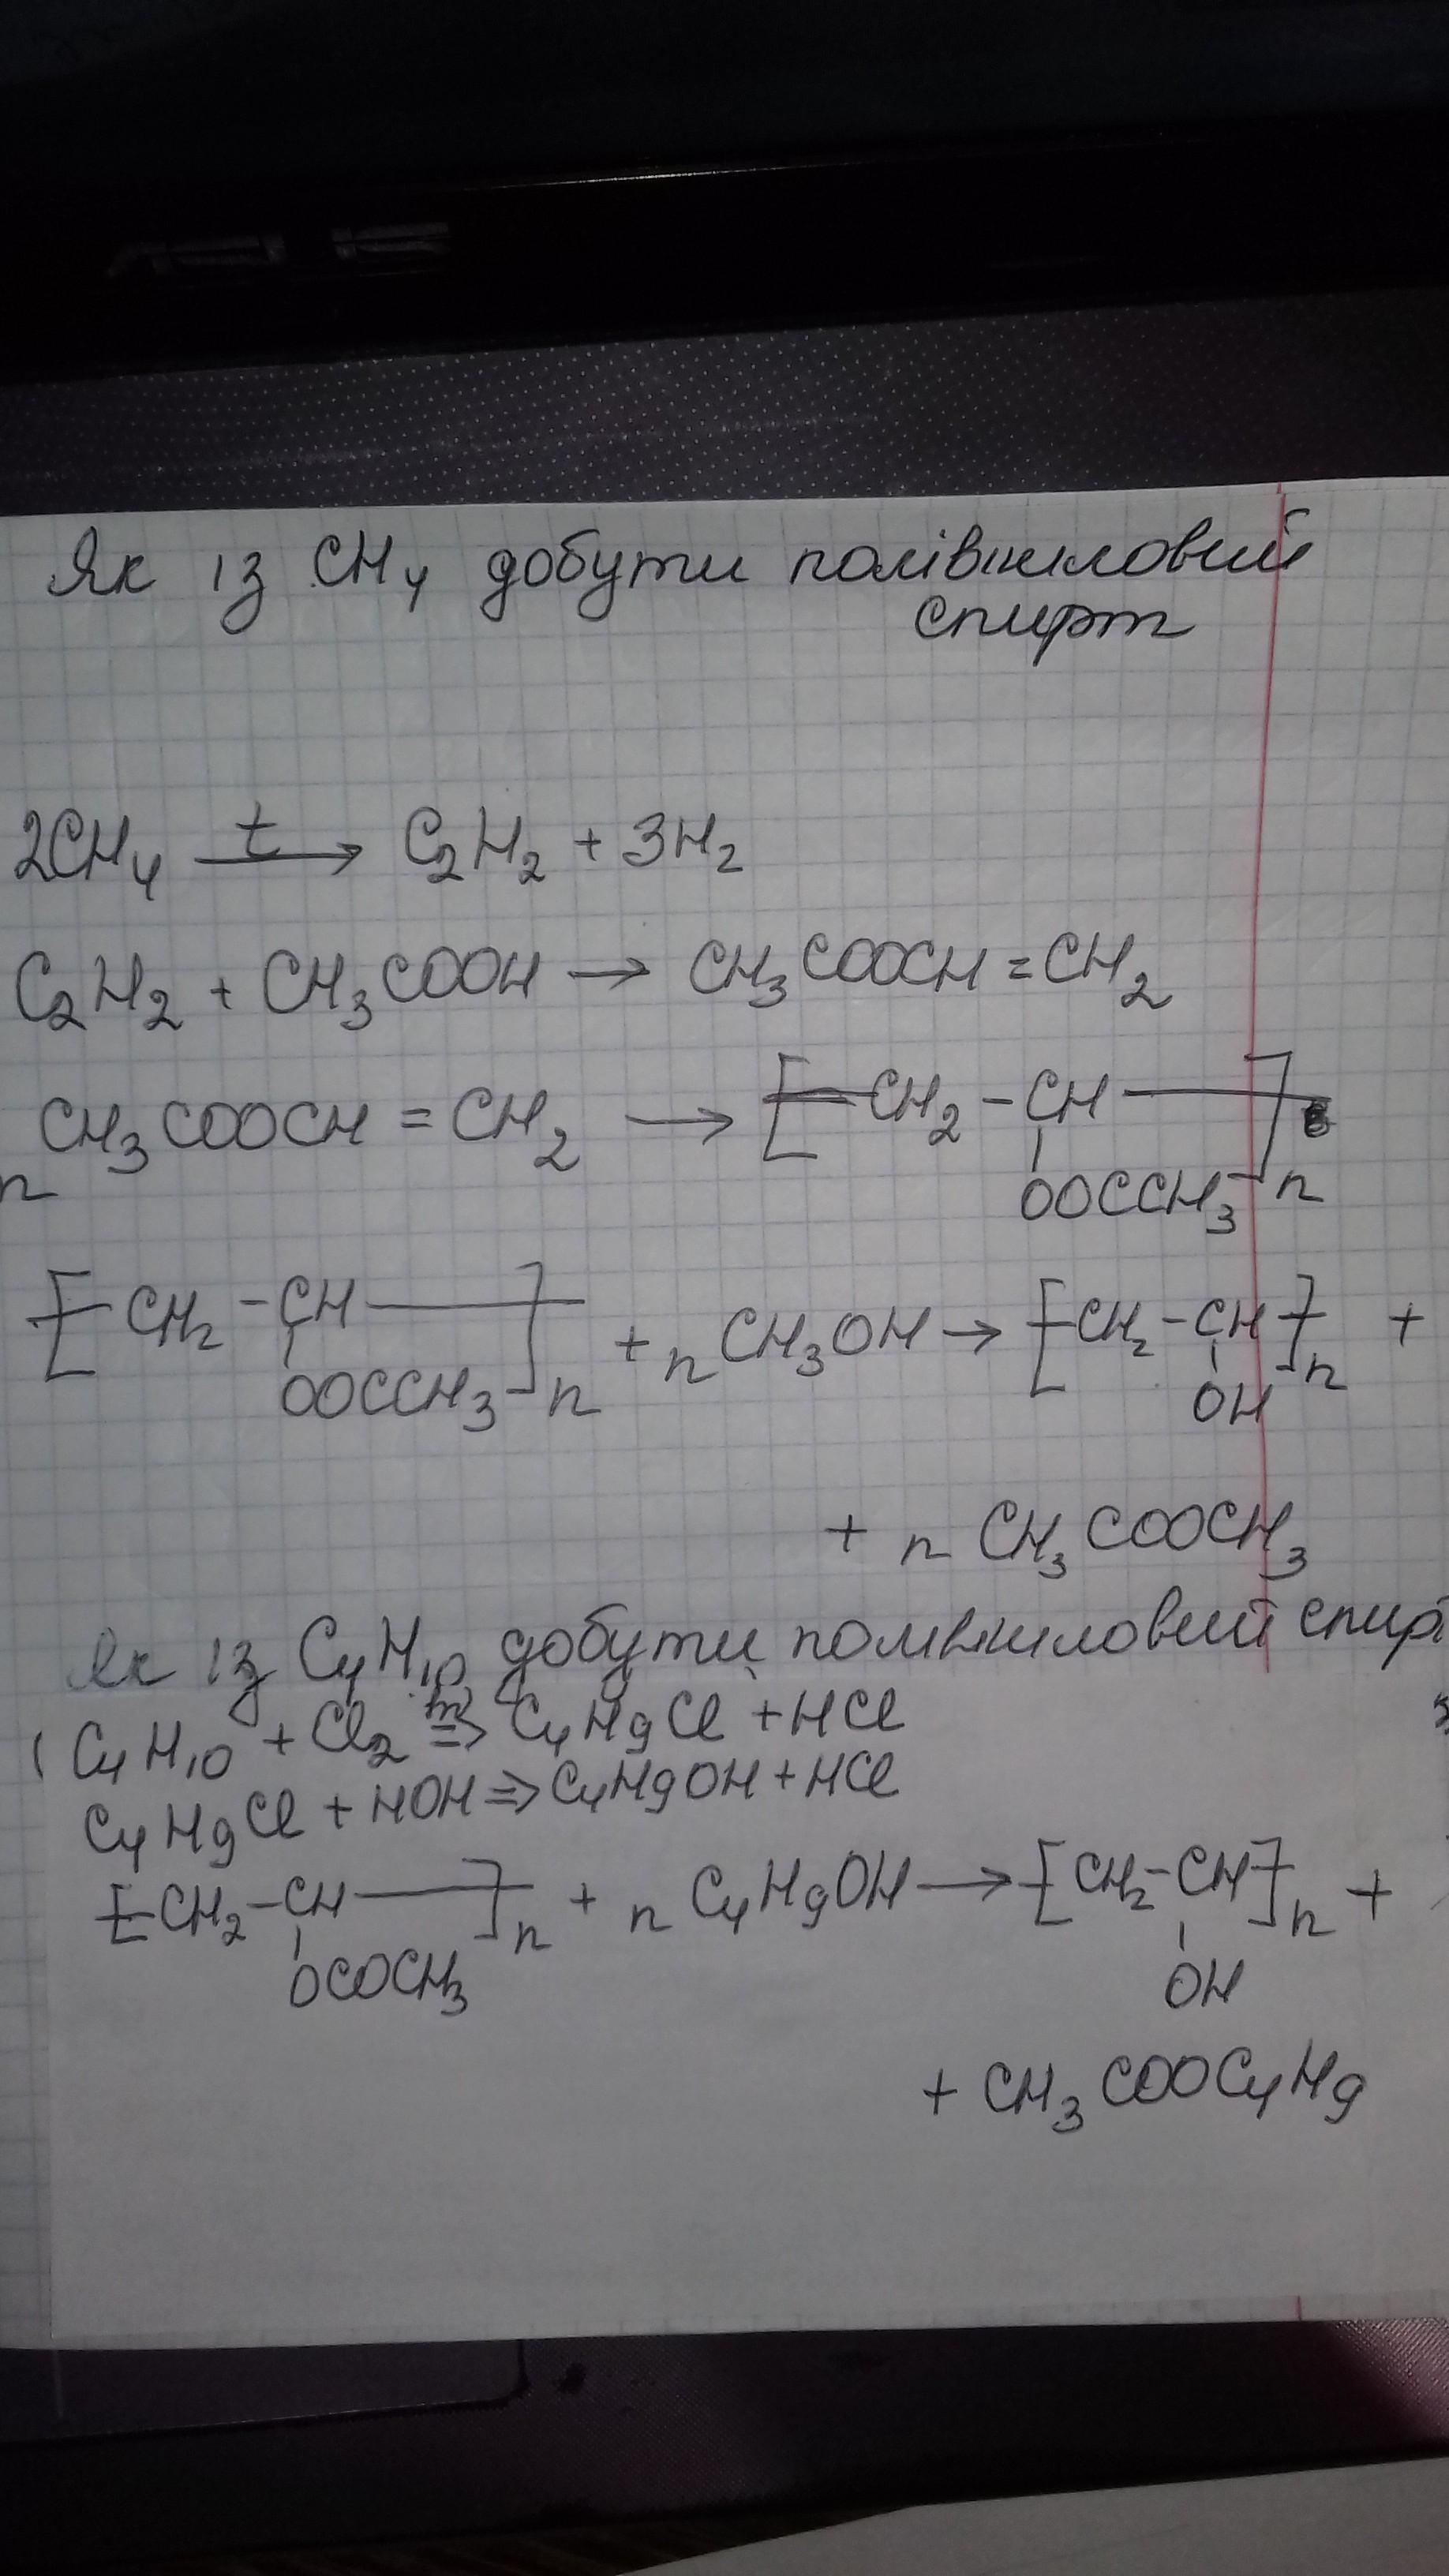 Як із CH4 добути полівініловий
спирт
2CH4 t→ C2H2 + 3H2
C2H2 + CH3COOH → CH3COOCH=CH2
nCH3COOCH=CH2 → [-CH2-CH-]n
OOCCH3
[-CH2-CH-]n + nCH3OH → [-CH2-CH-]n +
OOCCH3 OH
+ nCH3COOCH3
Як із C4H10 добути полівініловий спирт
C4H10 + Cl2 hν⇒ C4H9Cl + HCl
C4H9Cl + HOH ⇒ C4H9OH + HCl
[-CH2-CH-]n + nC4H9OH → [-CH2-CH-]n +
OCOCH3 OH
+ CH3COOC4H9